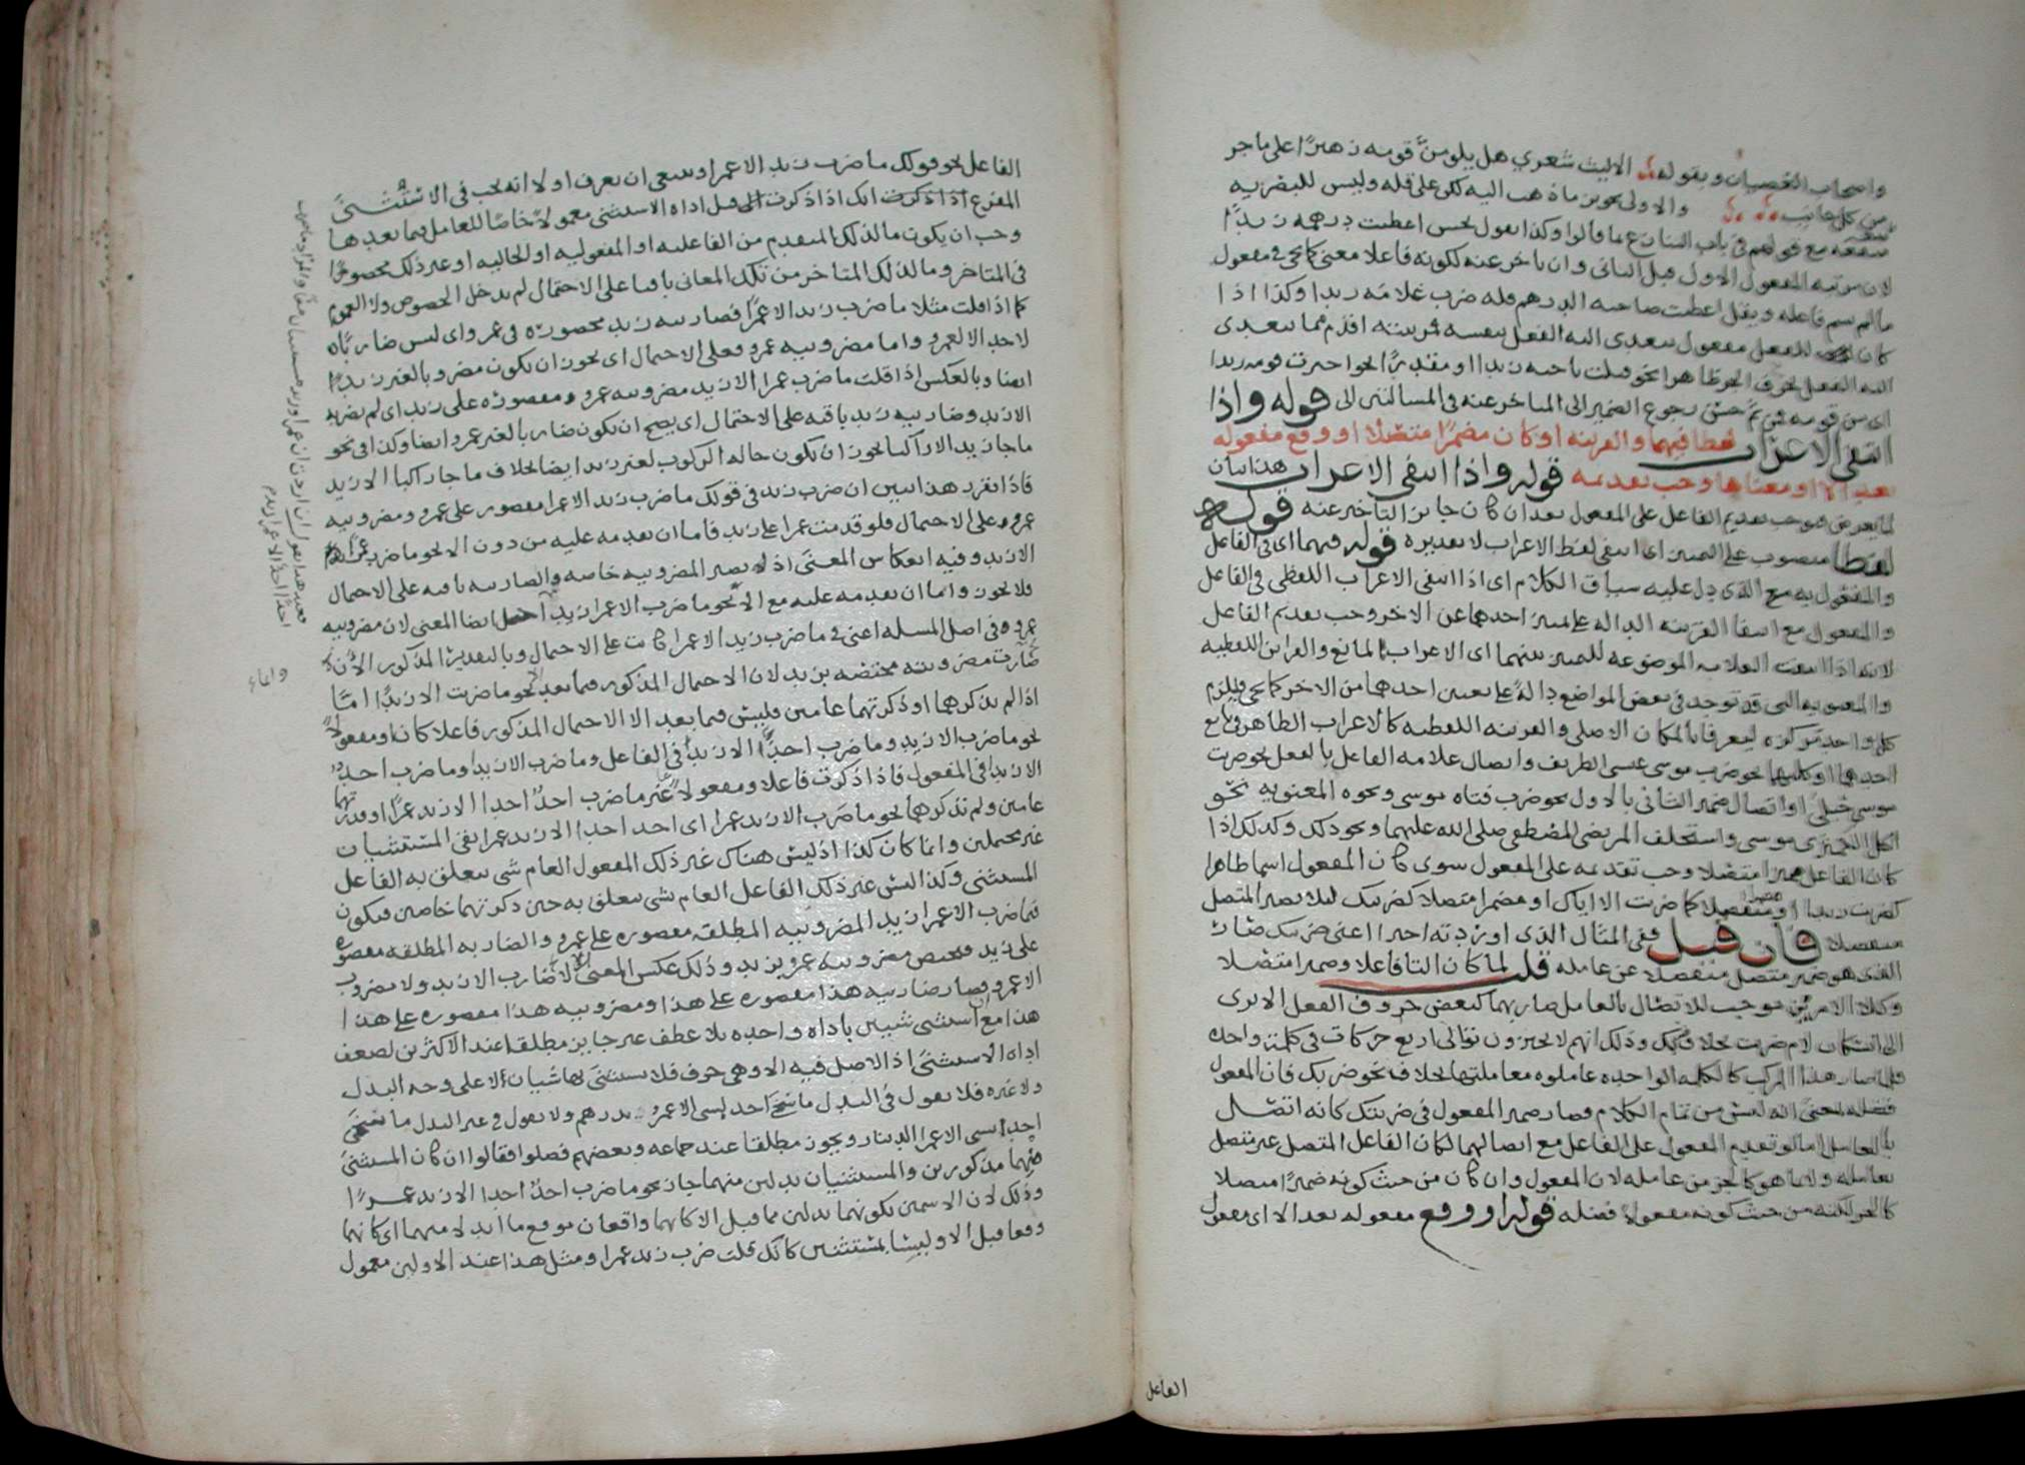 واصحاب الخصيان وبقوله الا ليت شعري هل يلومن قومه زهيرا على ما جر
من كل جانب والاولى تجويز ما ذهب اليه لكن على قلة وليس للبصرية
منعه مع قولهم في باب التنازع بما قالوا وكذا تقول لحسن اعطيت درهمه زيدا
لان مرتبة المفعول الاول قبل الثاني وان تاخر عنه لكونه فاعلا معنى كما يجي في مفعول
ما لم يسم فاعله ويقل اعطيت صاحبه الدرهم قلة ضرب غلامه زيدا وكذا اذا
كان للفعل مفعول يتعدى اليه الفعل بنفسه فمرتبته اقدم مما يتعدى
اليه الفعل بحرف الجر ظاهرا نحو قتلت باخيه زيدا او مقدرا نحو اخترت قومه زيدا
اي من قومه فمن ثم حسن رجوع الضمير الى المتاخر عنه في المسالتين الى قوله واذا
انتفى الاعراب لفظا فيهما والقرينة او كان مضمرا متصلا او وقع مفعوله
بعد الا او معناها وجب تقديمه قوله واذا انتفى الاعراب هذا بيان
لما يعرض فيوجب تقديم الفاعل على المفعول بعد ان كان جايز التاخر عنه قوله
لفظا منصوب على التمييز اى انتفى لفظ الاعراب لا تقديره قوله فيهما اى في الفاعل
والمفعول به مع الذى دل عليه سياق الكلام اى اذا انتفى الاعراب اللفظي في الفاعل
والمفعول مع انتفا القرينة الدالة على تمييز احدهما عن الاخر وجب تقديم الفاعل
لانه اذا انتفت العلامة الموضوعة للتمييز بينهما اى الاعراب لمانع والقراين اللفظية
والمعنوية التي قد توجد في بعض المواضع دالة على تعيين احدهما من الاخر كما يجي فليلزم
كل واحد مركزه ليعرفا بالمكان الاصلي والقرينة اللفظية كالاعراب الظاهر في تابع
احدهما او كليهما نحو ضرب موسى عيسى الظريف واتصال علامة الفاعل بالفعل نحو ضربت
موسى حبلى او اتصال ضمير الثاني بالاول نحو ضرب فتاه موسى ونحوه المعنوية نحو
اكل الكمثرى موسى واستخلف المرتضى المصطفى صلى الله عليهما ونحو ذلك وكذلك اذا
كان الفاعل ضميرا متصلا وجب تقديمه على المفعول سوى كان المفعول اسما ظاهرا
كضربت زيدا او منفصلا كما ضربت الا اياك او مضمرا متصلا كضربتك لئلا يصير المتصل
منفصلا فان قيل ففي المثال الذى اوردته اخيرا اعنى ضربتك صار
الذى هو ضمير متصل منفصلا عن عامله قلت لما كان التا فاعلا وضميرا متصلا
وكلا الامرين موجب للاتصال بالعامل صار بهما كبعض حروف الفعل الا ترى
الى اسكان لام ضربت بخلاف وذلك انهم لا يجيزون توالى اربع حركات في كلمة واحدة
فلما صار هذا المركب كالكلمة الواحدة عاملوه معاملتها بخلاف نحو ضربك فان المفعول
فضلة بمعنى انه ليس من تمام الكلام فصار ضمير المفعول في ضربتك كانه اتصل
بالعامل اما لو تقدم المفعول على الفاعل مع اتصالهما لكان الفاعل المتصل غير متصل
بعامله ولا بما هو كالجز من عامله لان المفعول وان كان من حيث كونه ضميرا متصلا
كالجز لكنه من حيث كونه مفعولا فضلة قوله او وقع مفعوله بعد الا اى مفعول
الفاعل
الفاعل نحو قولك ما ضرب زيد الا عمرا وينبغي ان تعرف اولا انه يجب في الاستثنى
المفرغ انك اذا ذكرت قبل اداة الاستثنى معمولا خاصا للعامل فيما بعدها
وجب ان يكون ما لذلك المتقدم من الفاعلية او المفعولية او الحالية او غير ذلك محصورا
في المتاخر وما لذلك المتاخر من تلك المعاني باقيا على الاحتمال لم يدخل الخصوص ولا العموم
كما اذا قلت مثلا ما ضرب زيد الا عمرا فضاربية زيد محصورة في عمرو اى ليس ضاربا
لاحد الا لعمرو واما مضروبية عمرو فعلى الاحتمال اى يجوز ان يكون مضروبا لغير زيد
ايضا وبالعكس اذا قلت ما ضرب عمرا الا زيد مضروبية عمرو مقصورة على زيد اى لم يضربه
الا زيد وضاربية زيد باقية على الاحتمال اى يصح ان يكون ضاربا لغير عمرو ايضا وكذا في نحو
ما جا زيد الا راكبا يجوز ان يكون حاله الركوب لغير زيد ايضا بخلاف ما جا راكبا الا زيد
فاذا تقرر هذا تبين ان ضرب زيد في قولك ما ضرب زيد الا عمرا مقصور على عمرو ومضروبية
عمرو على الاحتمال فلو قدمت عمرا على زيد فاما ان تقدمه عليه من دون الا نحو ما ضرب عمرا
الا زيد وفيه انعكاس المعنى اذ تصير المضروبية خاصة والضاربية باقية على الاحتمال
فلا يجوز واما ان تقدمه عليه مع الا نحو ما ضرب الا عمرا زيد ايضا المعنى لان مضروبية
عمرو في اصل المسئلة اعنى في ما ضرب زيد الا عمرا كانت على الاحتمال وبالتقدير المذكور الان
صارت مضروبيته مختصة بزيد لان الاحتمال المذكور فيما بعد الا نحو ما ضربت الا زيدا اما
اذا لم تذكرهما او ذكرتهما عامين فليس فيما بعد الا الاحتمال المذكور فاعلا كان او مفعولا
نحو ما ضرب الا زيد وما ضرب احدا الا زيد في الفاعل وما ضرب الا زيدا وما ضرب احد
الا زيدا في المفعول فاذا ذكرت فاعلا ومفعولا غير ما ضرب احد احدا الا زيد عمرا او قدرتهما
عامين ولم تذكرهما نحو ما ضرب الا زيد عمرا اى احد احدا الا زيد عمرا بقى المستثنيان
غير محتملين وانما كان كذا اذ ليس هناك غير ذلك المفعول العام شى يتعلق به الفاعل
المستثنى وكذا ليس غير ذلك الفاعل العام شى يتعلق به حين ذكرتهما خاصين فيكون
فما ضرب الا عمرا زيد المضروبية المطلقة مقصورة على عمرو والضاربة المطلقة مقصورة
على زيد فتختص مضروبية عمرو بزيد وذلك عكس المعنى لا ضارب الا زيد ولا مضروب
الا عمرو فصار ضاربية هذا مقصورة على هذا ومضروبية هذا مقصورة على هذا
هذا مع ان استثنى شيين باداة واحدة بلا عطف غير جايز مطلقا عند الاكثرين لضعف
اداة الاستثنى اذ الاصل فيه الا وهي حرف فلا يستثنى بها شيان لا على وجه البدل
ولا غيره فلا تقول في البدل ما سخى احد بشى الا عمرو بدرهم ولا تقول في غير البدل ما سخى
احد بشى الا عمرا الدينار ويجوز مطلقا عند جماعة وبعضهم فصلوا فقالوا ان كان المستثنى
منهما مذكورين والمستثنيان بدلين منهما جاز نحو ما ضرب احد احدا الا زيد عمرا
وذلك لان الاسمين بكونهما بدلين مما قبل الا كانهما واقعان موقع ما ابدلا منهما اى كانهما
وقعا قبل الا وليسا بمستثنيين كانك قلت ضرب زيد عمرا ومثل هذا عند الاولين معمول